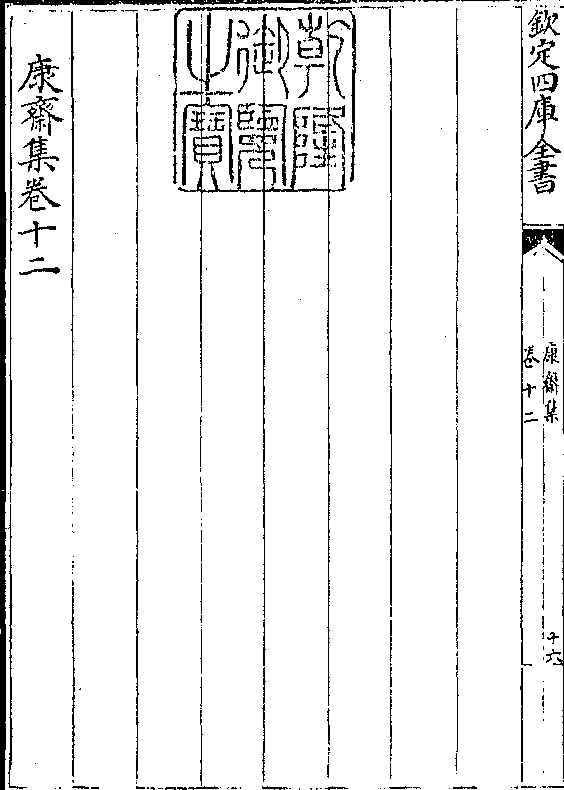 欽定四庫全書
康齋集
卷十二
十六
乾隆
御覽
之寶
康齋集卷十二